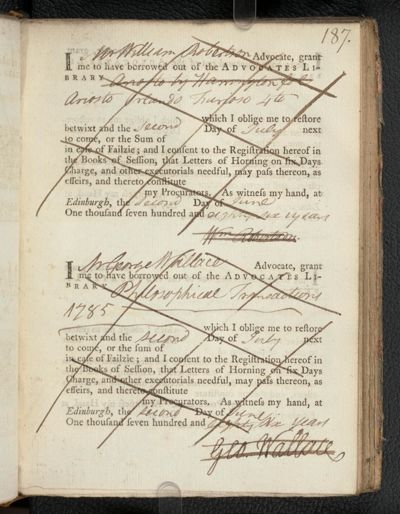 187.
I Mr William Robertson Advocate, grant
me to have borrowed out of the ADVOCATES LI-
BRARY Ariosto by Harrington fol:
Ariosto Orlando Furioso 4to
which I oblige me to restore
betwixt and the Second Day of July next
to come, or the Sum of
in case of Failzie; and I consent to the Registration hereof in
the Books of Session, that Letters of Horning on six Days
Charge, and other executorials needful, may pass thereon, as
effeirs, and thereto constitute
my Procurators. As witness my hand, at
Edinburgh, the Second Day of June
One thousand seven hundred and eighty six years
Wm Robertson.
I Mr George Wallace Advocate, grant
me to have borrowed out of the ADVOCATES LI-
BRARY Philosophical Transactions
1785
which I oblige me to restore
betwixt and the Second Day of July next
to come, or the sum of
in case of Failzie; and I consent to the Registration hereof in
the Books of Session, that Letters of Horning on six Days
Charge, and other executorials needful, may pass thereon, as
effeirs, and thereto constitute
my Procurators. As witness my hand, at
Edinburgh, the Second Day of June
One thousand seven hundred and eighty six years
Geo. Wallace